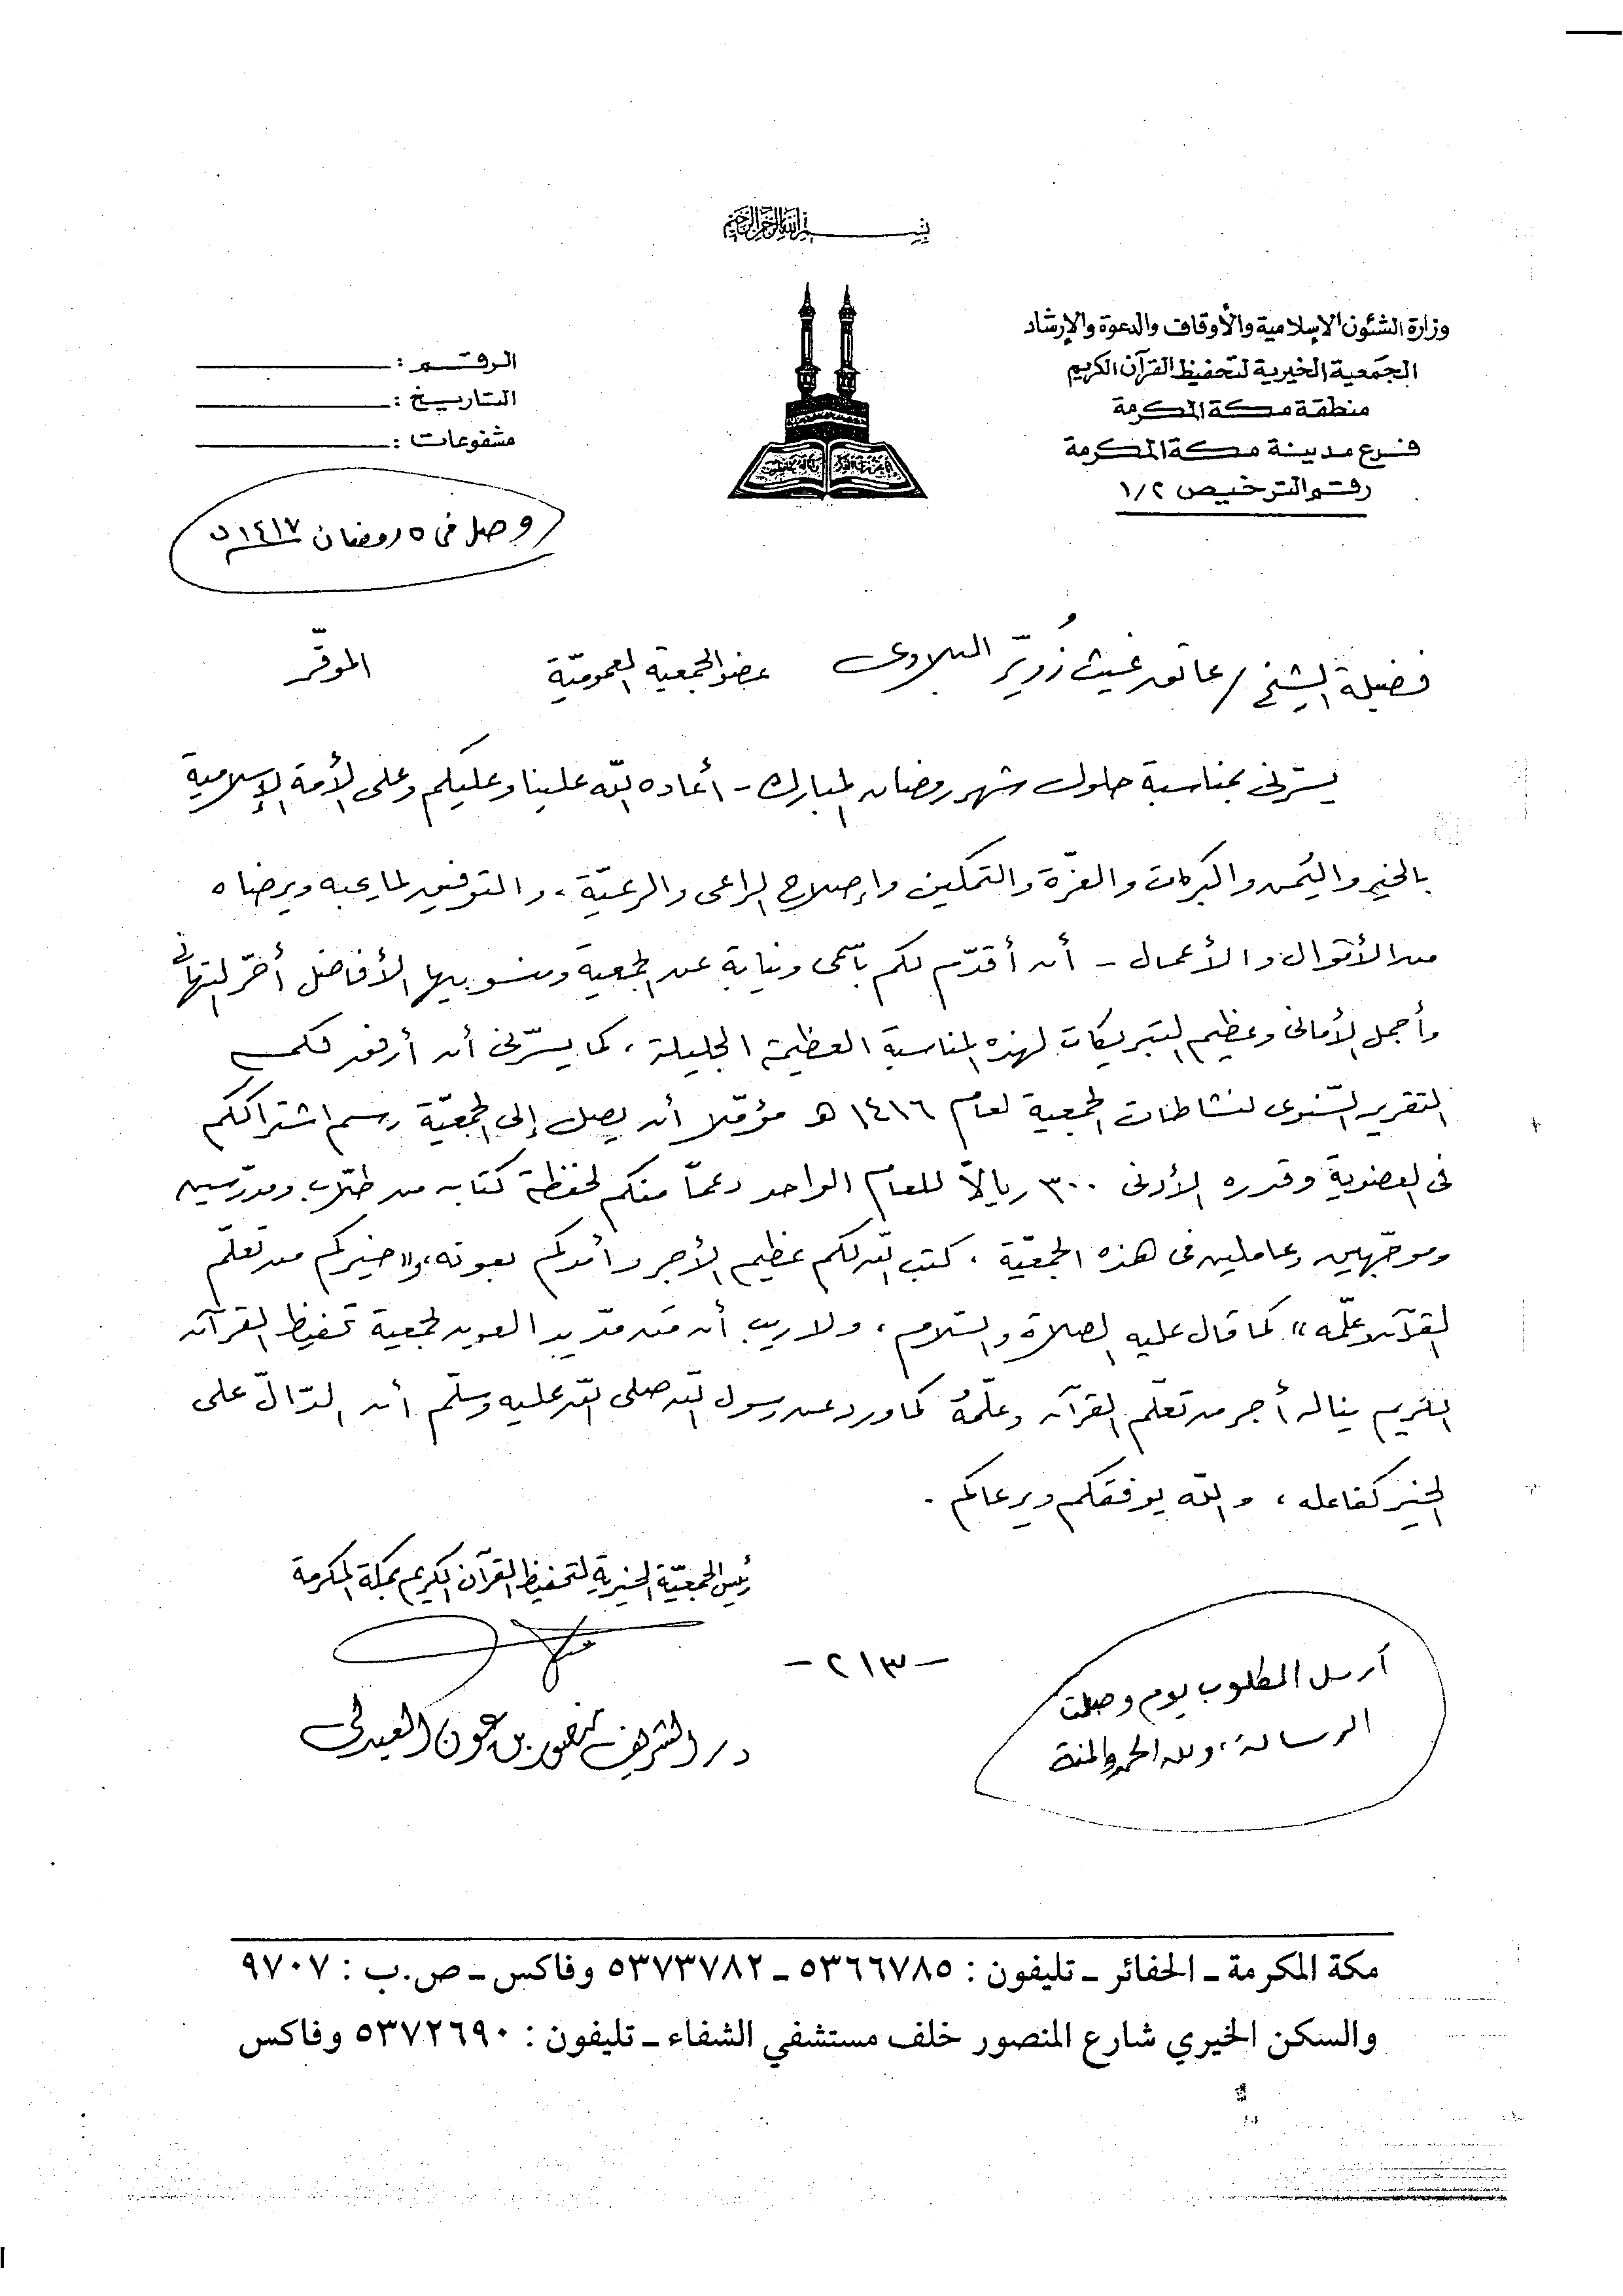 بسم الله الرحمن الرحيم
وزارة الشئون الإسلامية والأوقاف والدعوة والإرشاد
الجمعية الخيرية لتحفيظ القرآن الكريم
منطقة مكة المكرمة
فرع مدينة مكة المكرمة
رقم الترخيص ١/٢
الرقم :
التاريخ :
مشفوعات :
وصل في ٥ رمضان ١٤١٧
فضيلة الشيخ / عاتق غيث زُويّر البلادي عضو الجمعية العموميّة الموقّر
يسّرني بمناسبة حلول شهر رمضان المبارك - أعاده الله علينا وعليكم وعلى الأمة الإسلامية
بالخير واليُمن والبركات والعزّة والتمكين وإصلاح الراعي والرعيّة، والتوفيق لما يحبه ويرضاه
من الأقوال والأعمال - أن أقدّم لكم بآسمي ونيابة عن الجمعية ومنسوبيها الأفاضل أحرّ التهاني
وأجمل الأماني وعظيم التبريكات لهذه المناسبة العظيمة الجليلة، كما يسّرني أن أرفق لكم
التقرير السّنوي لنشاطات الجمعية لعام ١٤١٦ هـ مؤمّلا أن يصل إلى الجمعيّة رسم اشتراككم
في العضوية وقدره الأدنى ٣٠٠ ريالاً للعام الواحد دعمآ منكم لحفظة كتابه من طلّاب ومدرّسين
وموجّهين وعاملين في هذه الجمعيّة، كتب الله لكم عظيم الأجر وأمدكم بعونه، و«خيركم من تعلّم
القرآن وعلّمه» كما قال عليه الصلاة والسّلام، ولا ريب أن من مدّ يد العون لجمعية تحفيظ القرآن
الكريم يناله أجر من تعلّم القرآن وعلّمهُ كما ورد عن رسول الله صلى الله عليه وسلّم أن الدّالّ على
الخير كفاعله، والله يوفقكم ويرعاكم .
رئيس الجمعيّة الخيرية لتحفيظ القرآن الكريم بمكة المكرمة
د/ الشريف منصور بن عون العبدلي
- ٢١٣ -
أرسل المطلوب يوم وصلت
الرسالة، ولله الحمد والمنة
مكة المكرمة ـ الحفائر ـ تليفون : ٥٣٦٦٧٨٥ ـ ٥٣٧٣٧٨٢ وفاكس ـ ص.ب : ٩٧٠٧
والسكن الخيري شارع المنصور خلف مستشفي الشفاء ـ تليفون : ٥٣٧٢٦٩٠ وفاكس